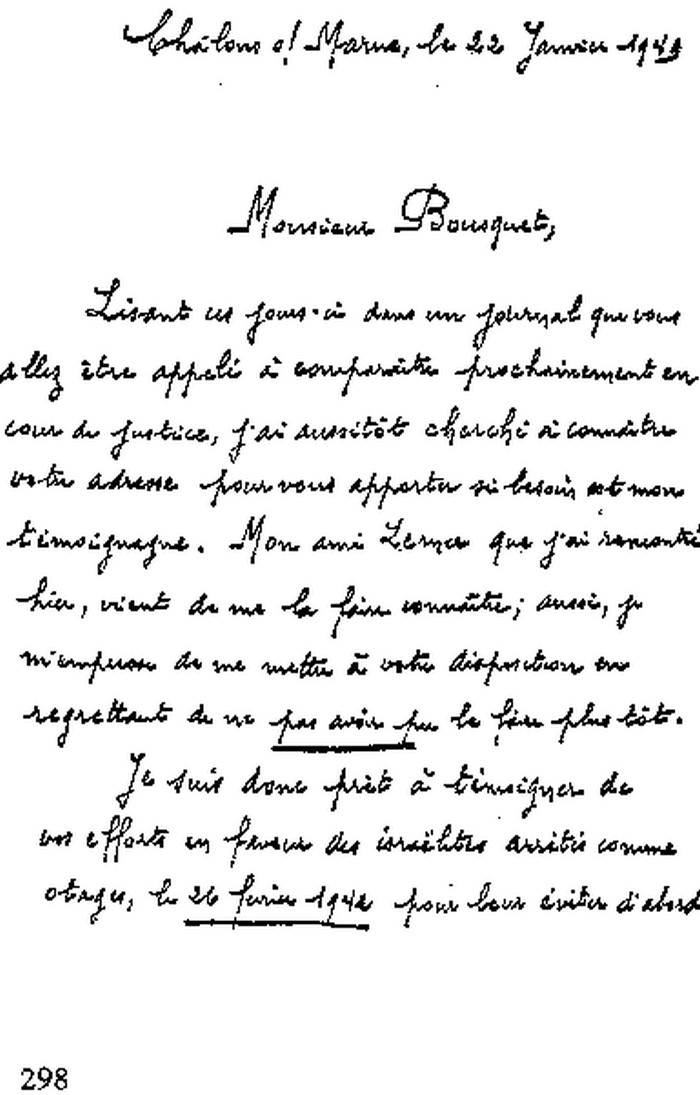 Châlons s/ Marne, le 22 Janvier 1949
Monsieur Bousquet,
Lisant ces jours-ci dans un journal que vous
allez être appelé à comparaître prochainement en
cour de justice, j'ai aussitôt cherché à connaître
votre adresse pour vous apporter si besoin est mon
témoignagne. Mon ami que j'ai rencontré
hier, vient de me la faire connaître; aussi, je
m'empresse de me mettre à votre disposition en
regrettant de ne pas avoir pu le faire plus tôt.
Je suis donc prêt à témoigner de
vos efforts en faveur des israëlites arrêtés comme
otages, le 26 février 1942 pour leur éviter d'abord
298